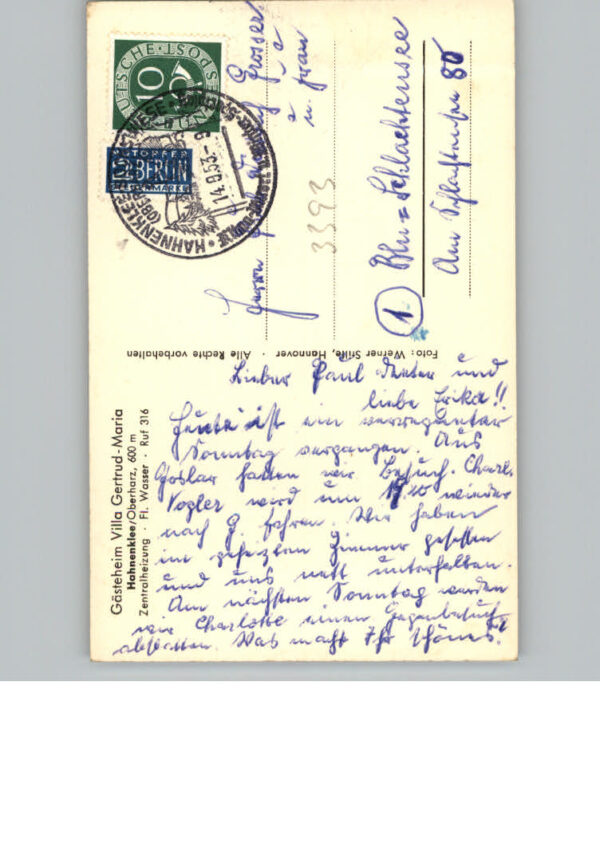 Gästeheim Villa Gertrud-Maria
Hahnenklee/Oberharz, 600 m
Zentralheizung · Fl. Wasser · Ruf 316
Foto: Werner Stille, Hannover · Alle Rechte vorbehalten
Lieber Paul Dieter und
liebe Erika!!
Heute ist ein verregneter
Sonntag vergangen. Aus
Goslar hatten wir Besuch. Charl.
Vogler wird um wieder
nach G. fahren. Wir haben
im geheizten Zimmer gesessen
und uns nett unterhalten.
Am nächsten Sonntag werden
wir Charlotte einen Gegenbesuch
abstatten. Was macht Ihr Schönes?
DEUTSCHE POST
10
NOTOPFER
2 BERLIN
STEUERMARKE
HAHNENKLEE-BOCKSWIESE
(OBERHARZ)
14.9.53
Herrn
Grosser
u. Frau
3393
(1) Bln = Schlachtensee
Am Schlachtensee 80